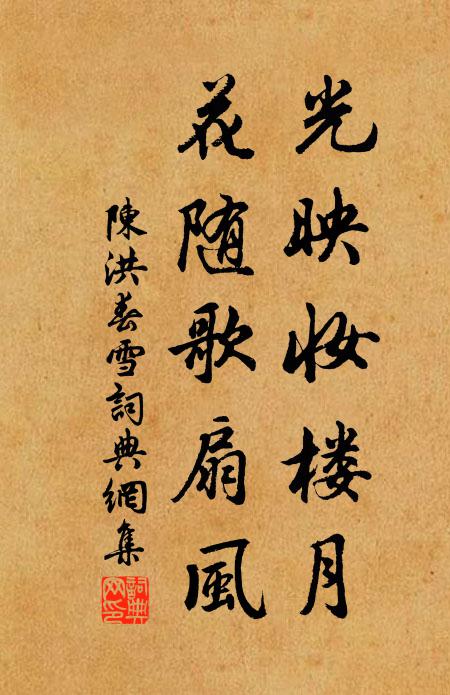 光映妆楼月
花随歌扇风
陳洪春雪詞典網集
詞典网印